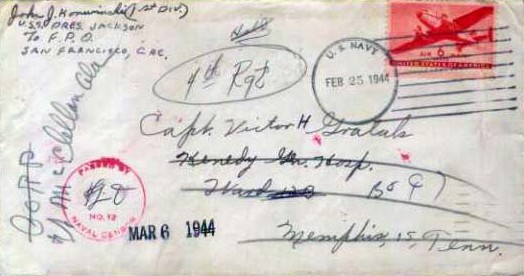 John J. Konwinski (1st Div.)
U.S.S. PRES. JACKSON
To F.P.O.
SAN FRANCISCO, CAL.
4th Rgt
U.S. NAVY
FEB 25 1944
AIR 6 MAIL
UNITED STATES OF AMERICA
Capt. Victor H
Kenedy Gen. Hosp.
Ward
Memphis, 15, Tenn.
Ft McClellan Ala
PASSED BY
NO. 12
NAVAL CENSOR
MAR 6 1944